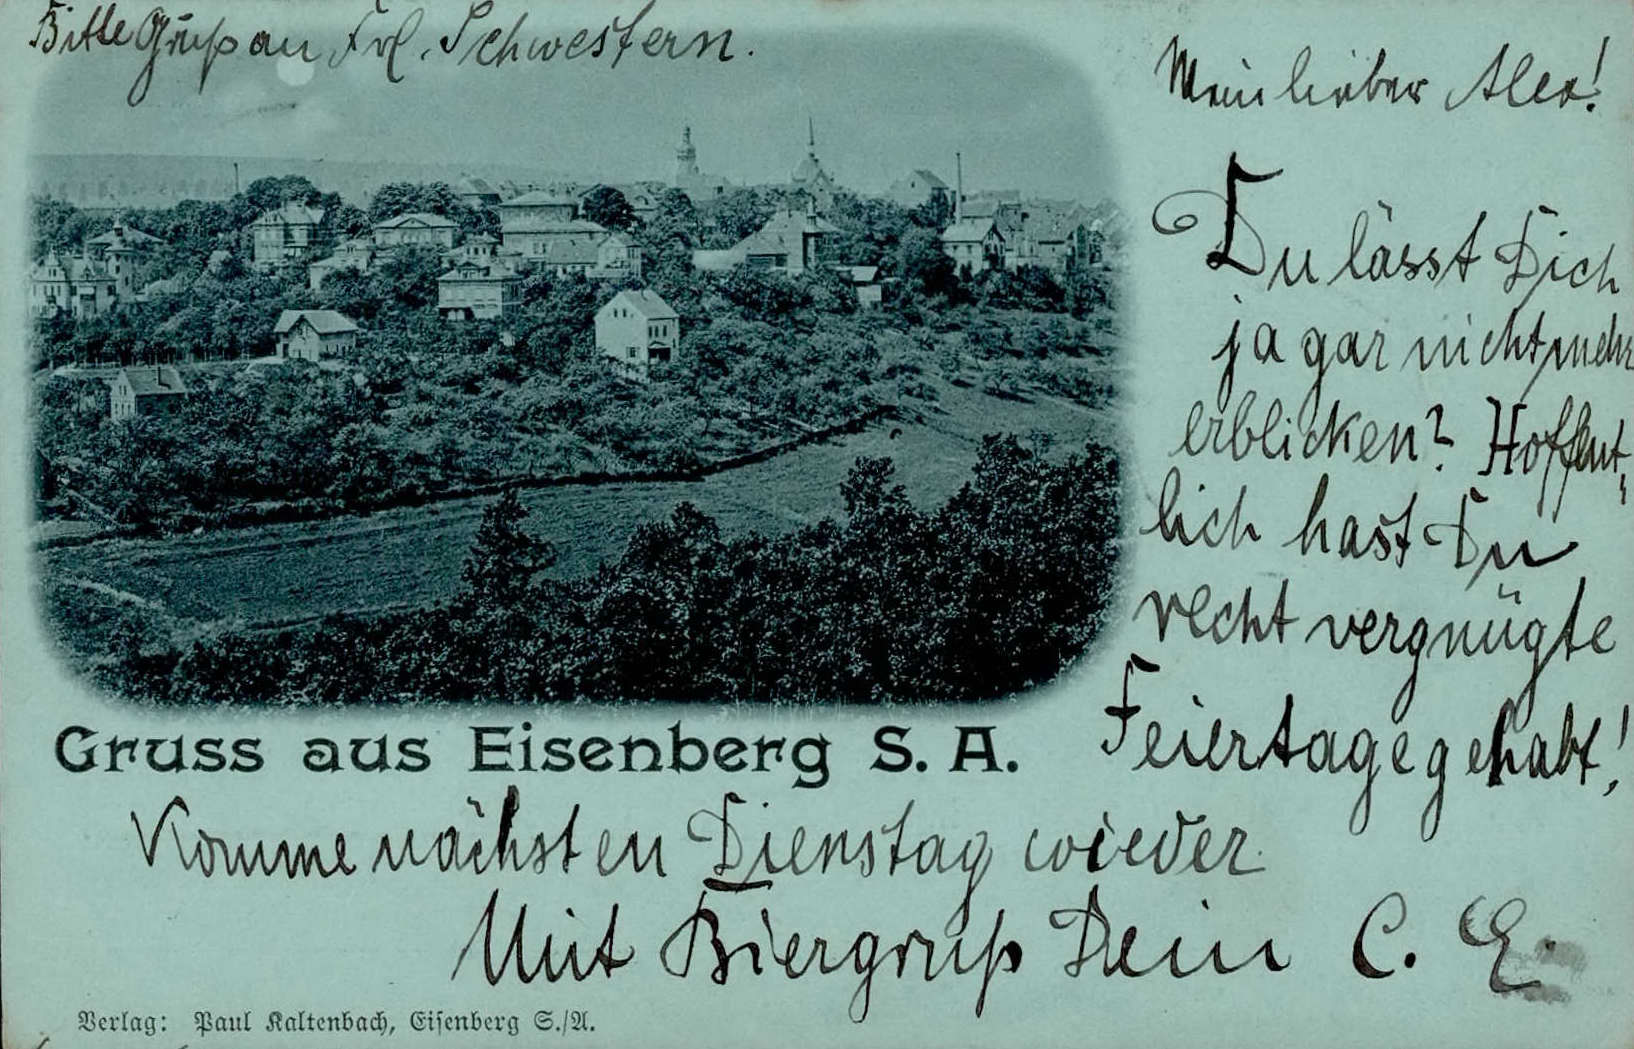 Bitte Gruß an Frl. Schwestern.
Mein lieber Alex!
Du lässt Dich
ja gar nicht mehr
erblicken? Hoffent-
lich hast Du
recht vergnügte
Feiertage gehabt!
Gruss aus Eisenberg S. A.
Komme nächsten Dienstag wieder.
Mit Biergruß Dein C. E.
Verlag: Paul Kaltenbach, Eisenberg S./A.